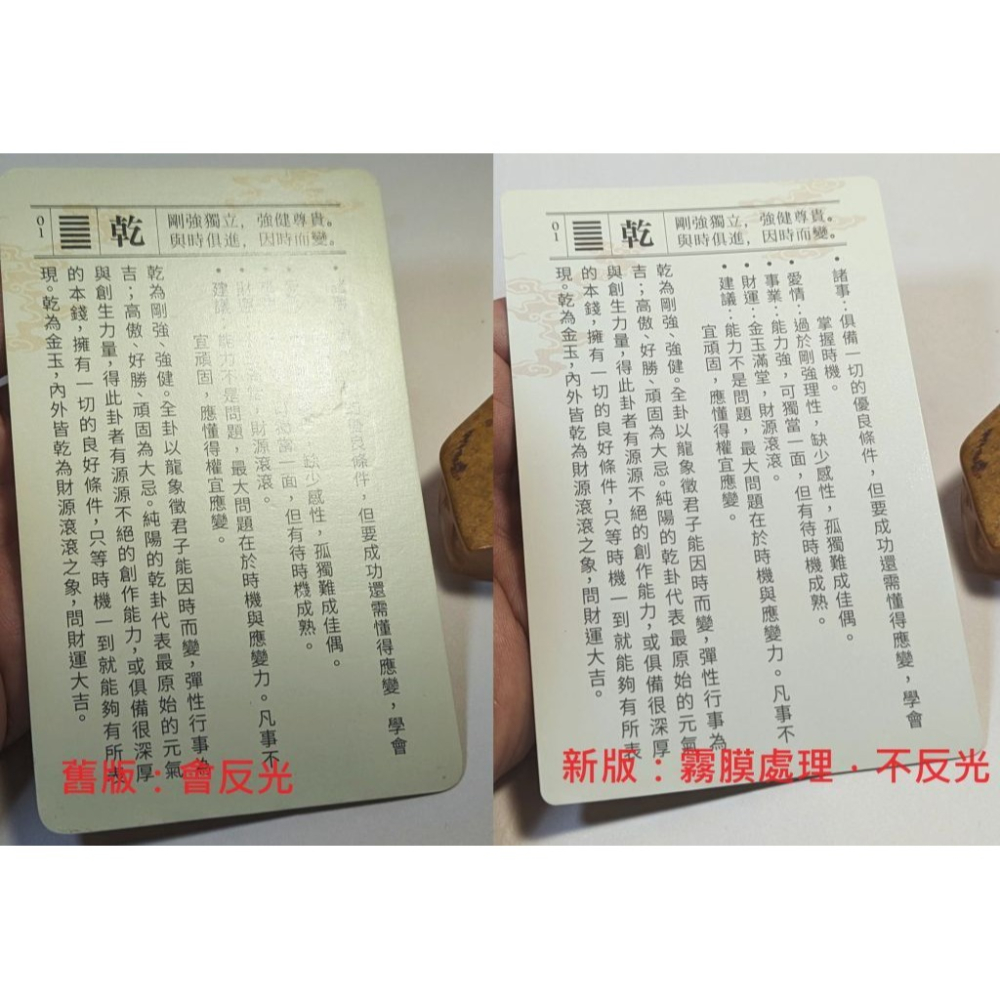 01
乾
剛強獨立，強健尊貴。
與時俱進，因時而變。
良條件，但要成功還需懂得應變，學會
缺少感性，孤獨難成佳偶。
獨當一面，但有待時機成熟。
財運 財源滾滾。
• 建議：能力不是問題，最大問題在於時機與應變力。凡事不
宜頑固，應懂得權宜應變。
乾為剛強、強健。全卦以龍象徵君子能因時而變，彈性行事為
吉；高傲、好勝、頑固為大忌。純陽的乾卦代表最原始的元氣
與創生力量，得此卦者有源源不絕的創作能力，或俱備很深厚
的本錢，擁有一切的良好條件，只等時機一到就能夠有所表
現。乾為金玉，內外皆乾為財源滾滾之象，問財運大吉。
舊版：會反光
01
乾
剛強獨立，強健尊貴。
與時俱進，因時而變。
• 諸事：俱備一切的優良條件，但要成功還需懂得應變，學會
掌握時機。
• 愛情：過於剛強理性，缺少感性，孤獨難成佳偶。
• 事業：能力強，可獨當一面，但有待時機成熟。
• 財運：金玉滿堂，財源滾滾。
• 建議：能力不是問題，最大問題在於時機與應變力。凡事不
宜頑固，應懂得權宜應變。
乾為剛強、強健。全卦以龍象徵君子能因時而變，彈性行事為
吉；高傲、好勝、頑固為大忌。純陽的乾卦代表最原始的元氣
與創生力量，得此卦者有源源不絕的創作能力，或俱備很深厚
的本錢，擁有一切的良好條件，只等時機一到就能夠有所表
現。乾為金玉，內外皆乾為財源滾滾之象，問財運大吉。
新版：霧膜處理．不反光